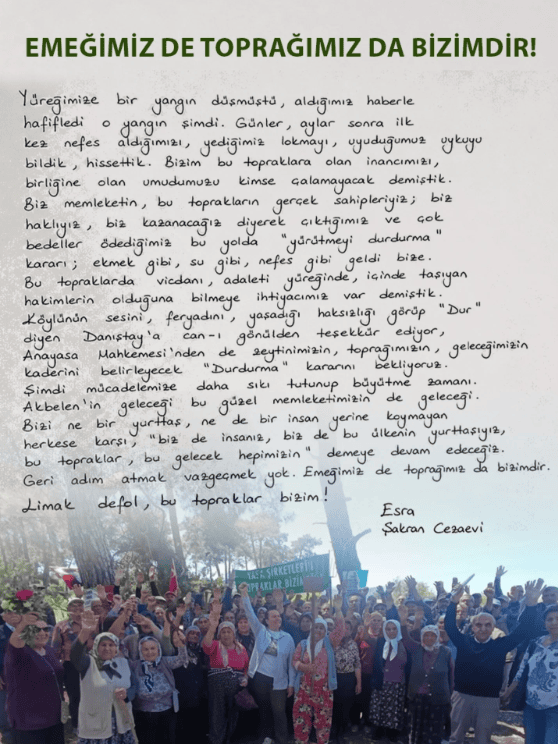 EMEĞİMİZ DE TOPRAĞIMIZ DA BİZİMDİR!
Yüreğimize bir yangın düşmüştü, aldığımız haberle
hafifledi o yangın şimdi. Günler, aylar sonra ilk
kez nefes aldığımızı, yediğimiz lokmayı, uyuduğumuz uykuyu
bildik, hissettik. Bizim bu topraklara olan inancımızı,
birliğine olan umudumuzu kimse çalamayacak demiştik.
Biz memleketin, bu toprakların gerçek sahipleriyiz; biz
haklıyız, biz kazanacağız diyerek çıktığımız ve çok
bedeller ödediğimiz bu yolda "yürütmeyi durdurma"
kararı; ekmek gibi, su gibi, nefes gibi geldi bize.
Bu topraklarda vicdanı, adaleti yüreğinde, içinde taşıyan
hakimlerin olduğuna bilmeye ihtiyacımız var demiştik.
Köylünün sesini, feryadını, yaşadığı haksızlığı görüp "Dur"
diyen Danıştay'a can-ı gönülden teşekkür ediyor,
Anayasa Mahkemesi'nden de zeytinimizin, toprağımızın, geleceğimizin
kaderini belirleyecek "Durdurma" kararını bekliyoruz.
Şimdi mücadelemize daha sıkı tutunup büyütme zamanı.
Akbelen'in geleceği bu güzel memleketimizin de geleceği.
Bizi ne bir yurttaş, ne de bir insan yerine koymayan
herkese karşı, "biz de insanız, biz de bu ülkenin yurttaşıyız,
bu topraklar, bu gelecek hepimizin" demeye devam edeceğiz.
Geri adım atmak vazgeçmek yok. Emeğimiz de toprağımız da bizimdir.
Limak defol, bu topraklar bizim!
Esra
Şakran Cezaevi
ŞİRKETLERİ
TOPRAKLAR BİZİM